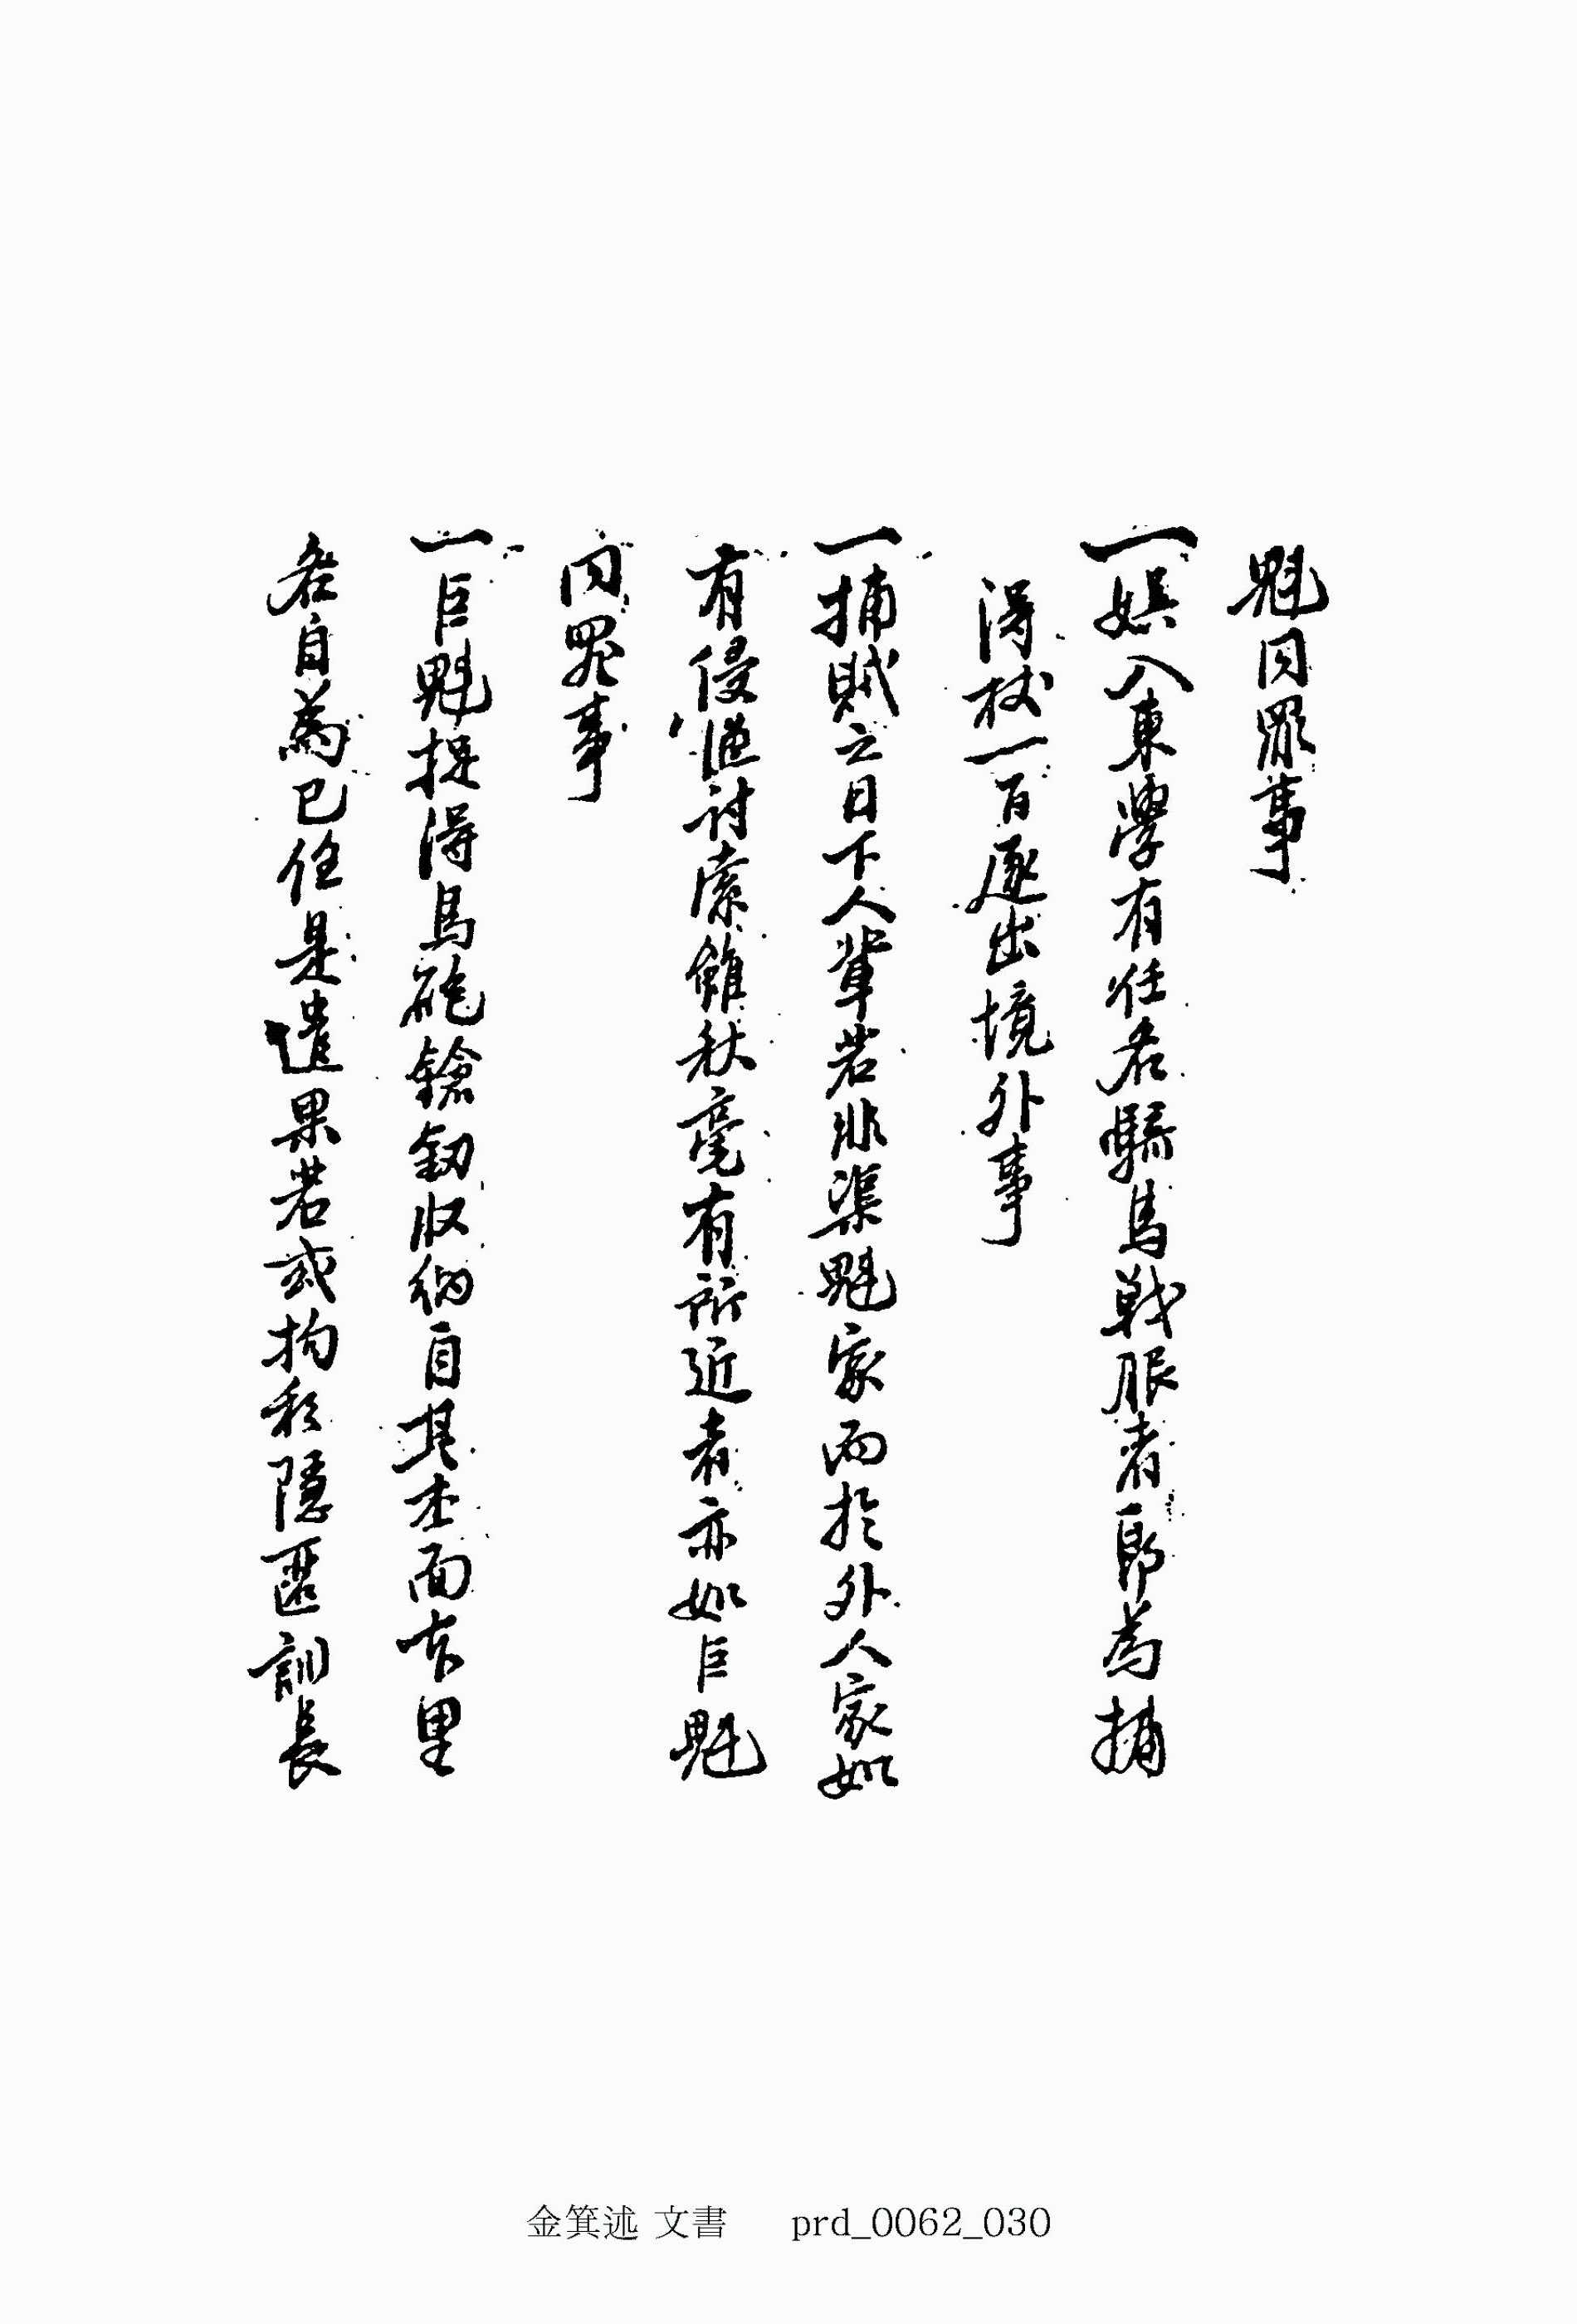 魁同罪事
一娛入東學有任名騎馬戰服者郎為捕
得杖一百逐出境外事
一捕賊之日下人輩若非渠魁家而於外人家如
有侵漁討索雖秋毫有所近者亦如巨魁
同罪事
一巨魁捉得鳥砲鎗釰收納自其本面右里
各自為已任是遣果若或拘私隱匿訓長
金箕述 文書 prd_0062_030